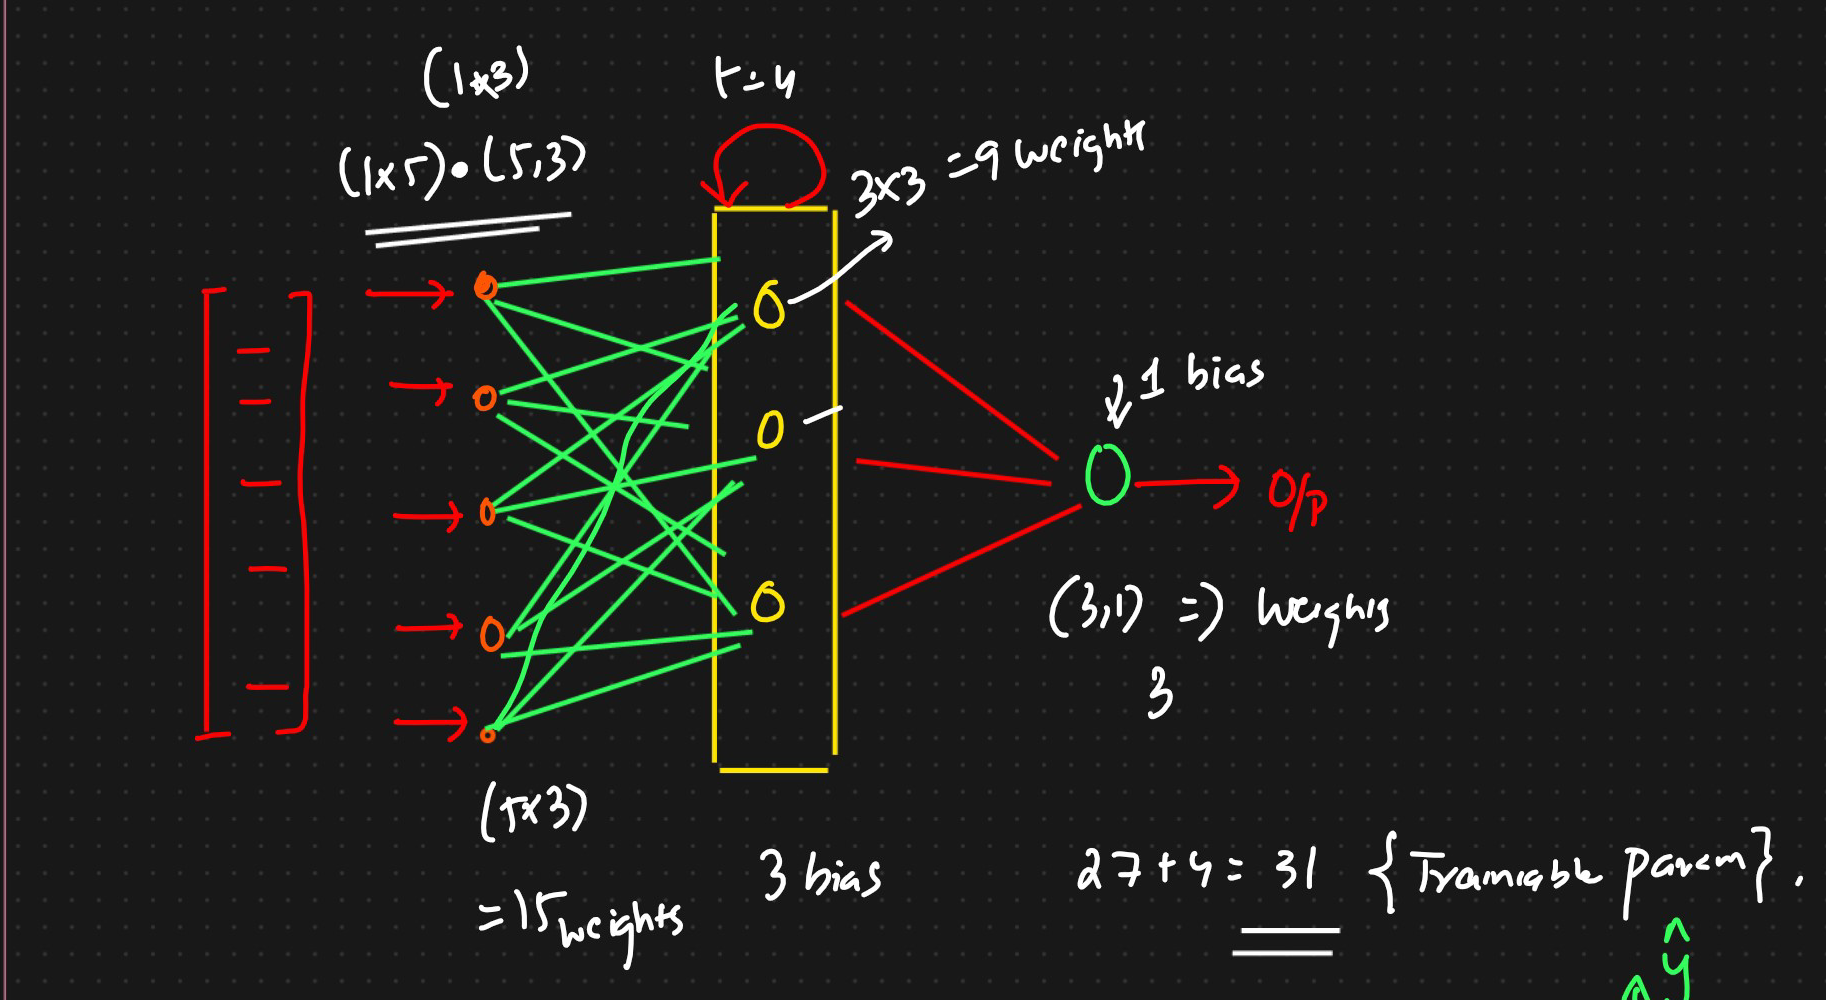 (1x3)
(1x5) • (5,3)
t=4
3x3 =9 weights
1 bias
O/p
(3,1) => weights
3
(5x3)
=15 weights
3 bias
27+4= 31 {Trainable param}.
ŷ